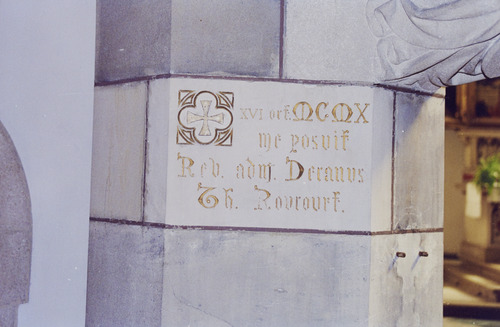 XVI oct. MCMX
me posuit
Rev. adm. Decanus
Th. Rovrovrk.